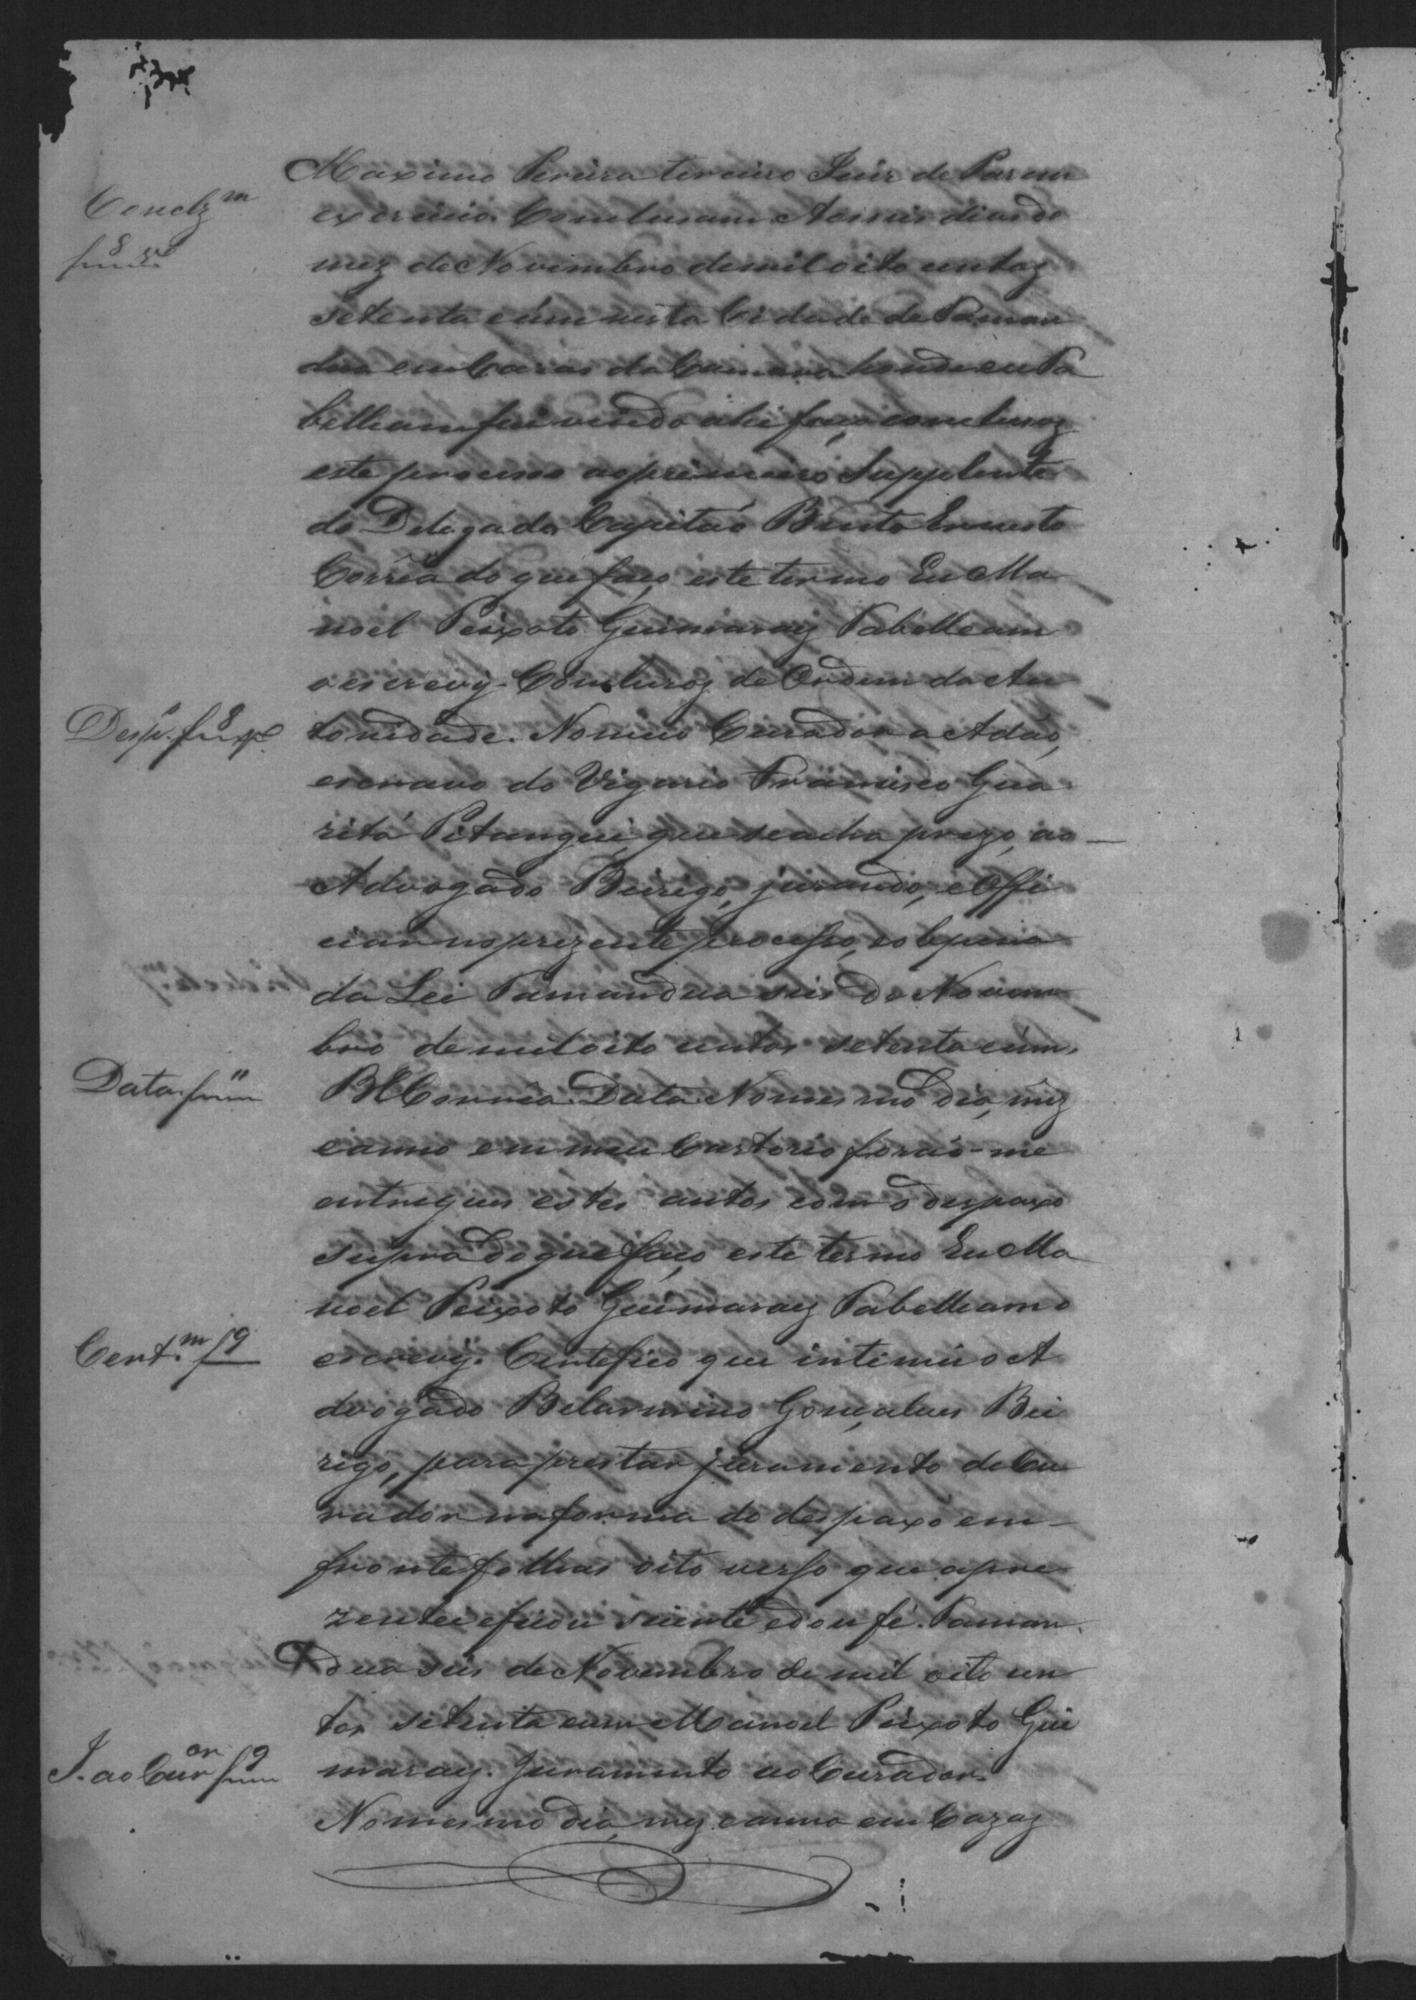 Maximo Pereira terceiro Juiz de Paz em
exercicio. Conclusam Aos seis dias do
mez de Novembro de mil oito centoz
setenta e úm nesta Cidade de Taman
dua em Cazas da Camara honde eu Ta
belliam fui vindo ahi faço concluzoz
este processo ao primeiro Supplente
do Delegado Capitaó Bento Ernesto
Corrêa do que faço este termo Eu Ma
noel Peixoto Guimaraez Tabelleam
o escrevÿ. Concluzoz de Ordem da Au
toridade. Nomeio Curador a Adaó,
escravo do Vigario Francisco Gua
ritá Pitangui, que se acha prezo, ao
Advogado Beirigo, jurando, e Offi
ciar no prezente processo, sob pena
da Lei Tamandua seis de Novem
bro de mil oito centos setenta e úm.
BECorrêa. Data No mesmo dia, mez
e anno em meu Cartorio foraó-me
entregues estes autos com o despaxo
supra do que faço este termo Eu Ma
noel Peixoto Guimaraez Tabelleam o
escrevÿ. Certefico que intimei o A
dvogado Belarmino Gonçalves Bei
rigo, para prestar juramento de Cu
rador na forma do despaxo em
fronte folhas oito verso que apre
zentei e ficou sciente e dou fé. Taman
dua seis de Novembro de mil oito cen
tos setenta eum Manoel Peixoto Gui
maraez. Juramento ao Curador.
No mesmo dia, mez e anno em Cazaz
Conclz.m
f 8
Desp. f 8
Data f
Cert.m f 9
J. ao Cur.or f 9